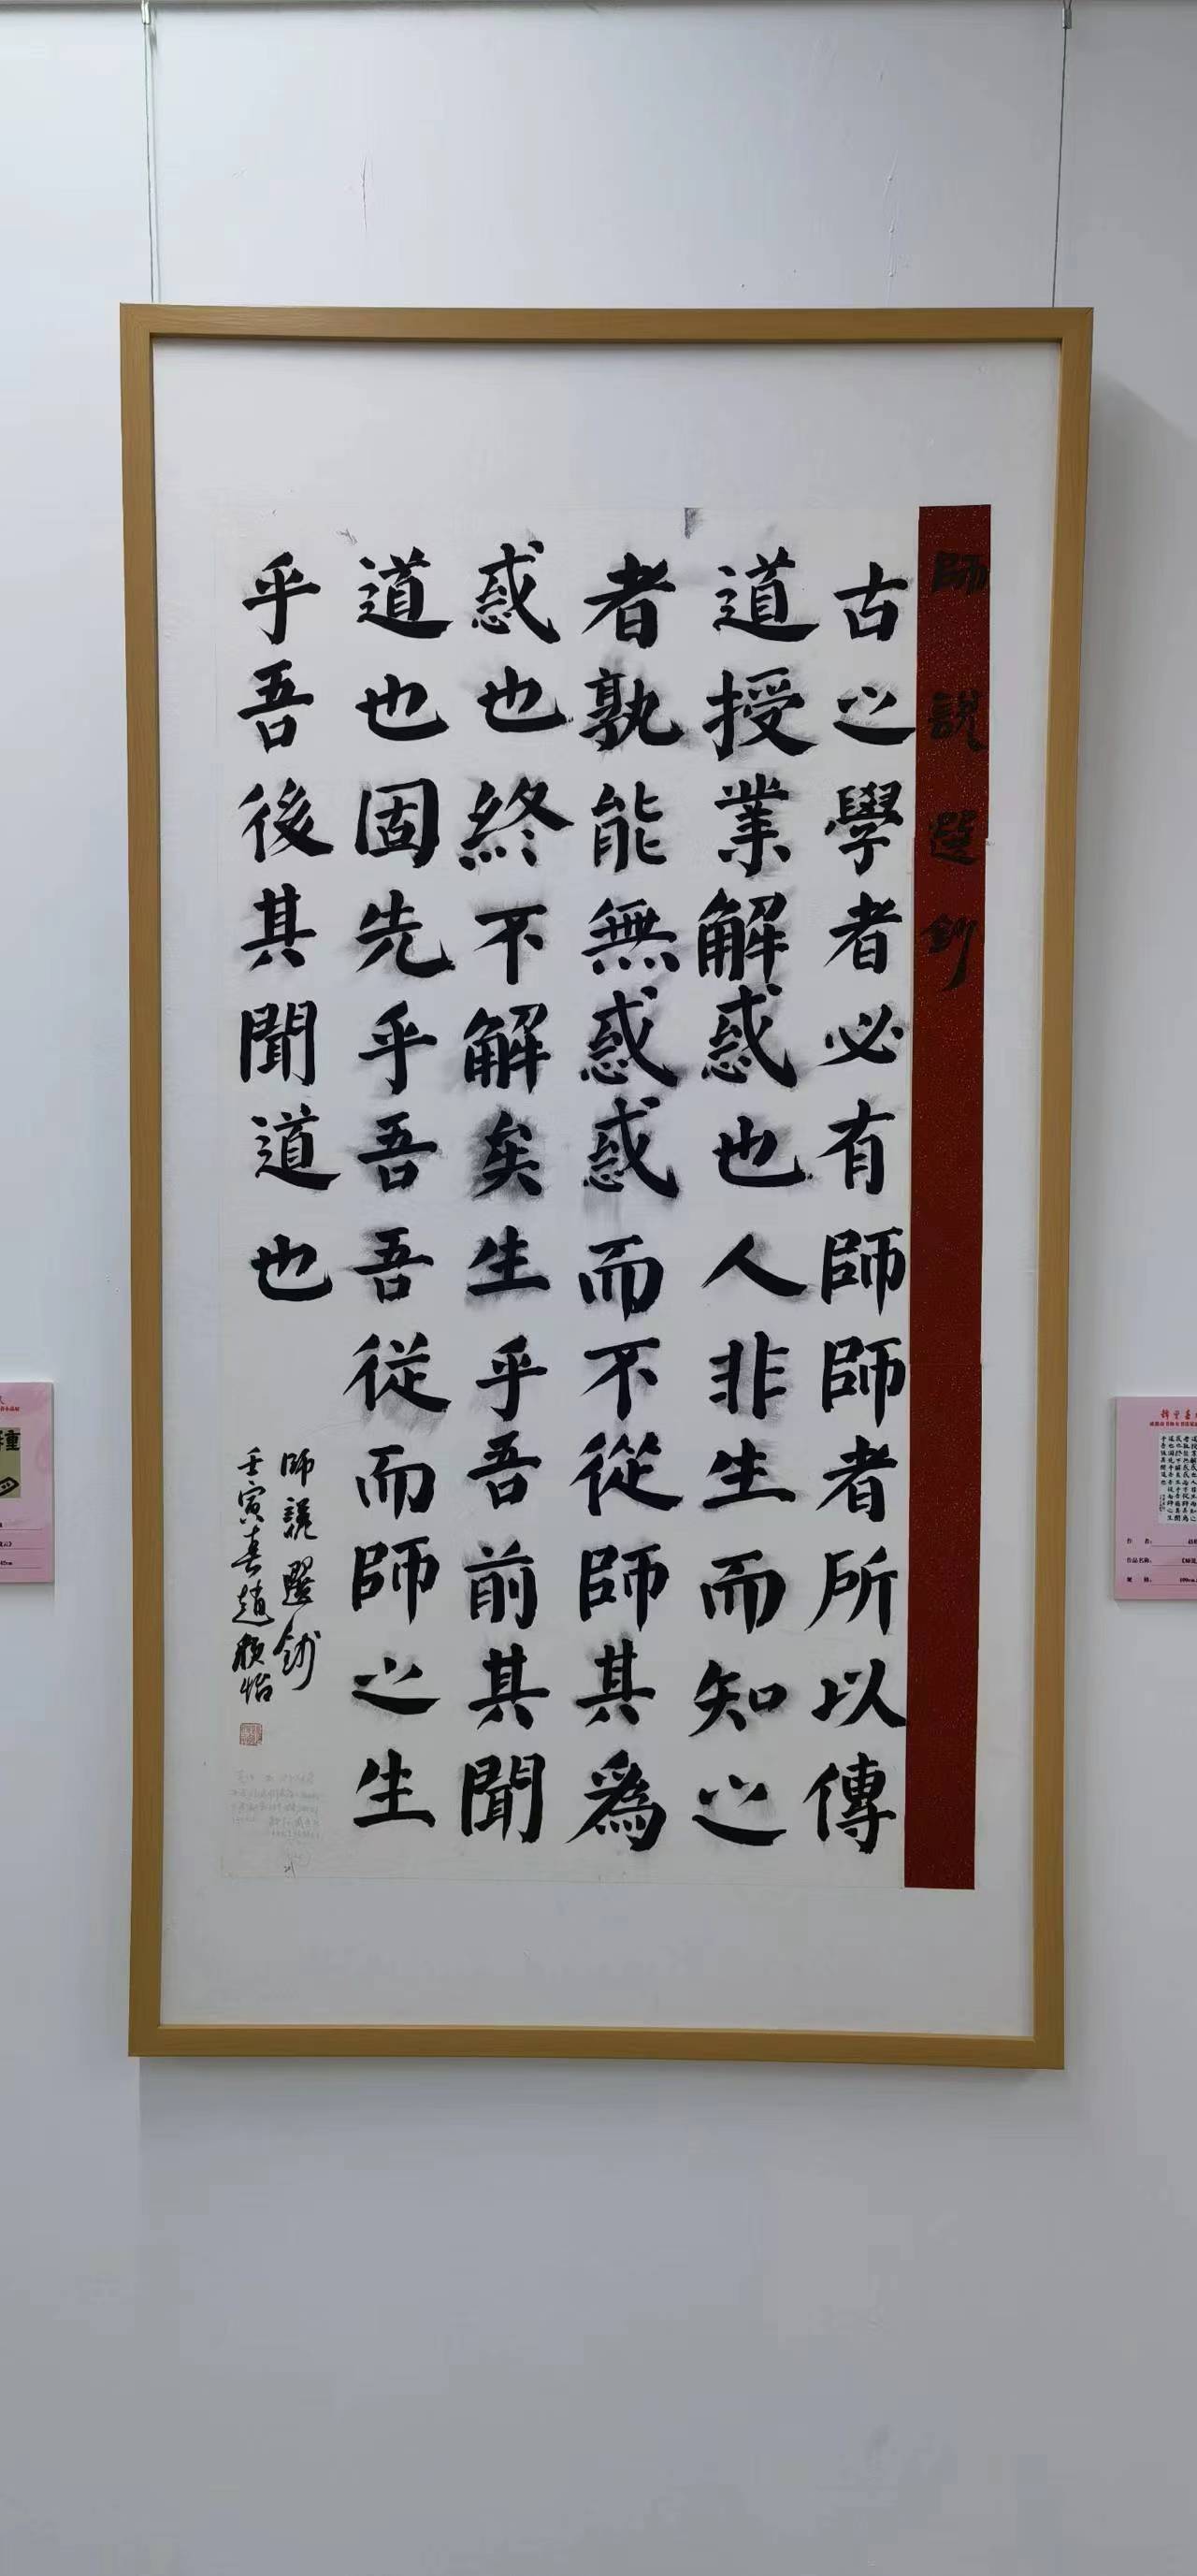 師說選鈔
古之學者必有師師者所以傳
道授業解惑也人非生而知之
者孰能無惑惑而不從師其爲
惑也終不解矣生乎吾前其聞
道也固先乎吾吾従而師之生
乎吾後其聞道也
師說選鈔
壬寅春趙怡
作者：
作品名称：